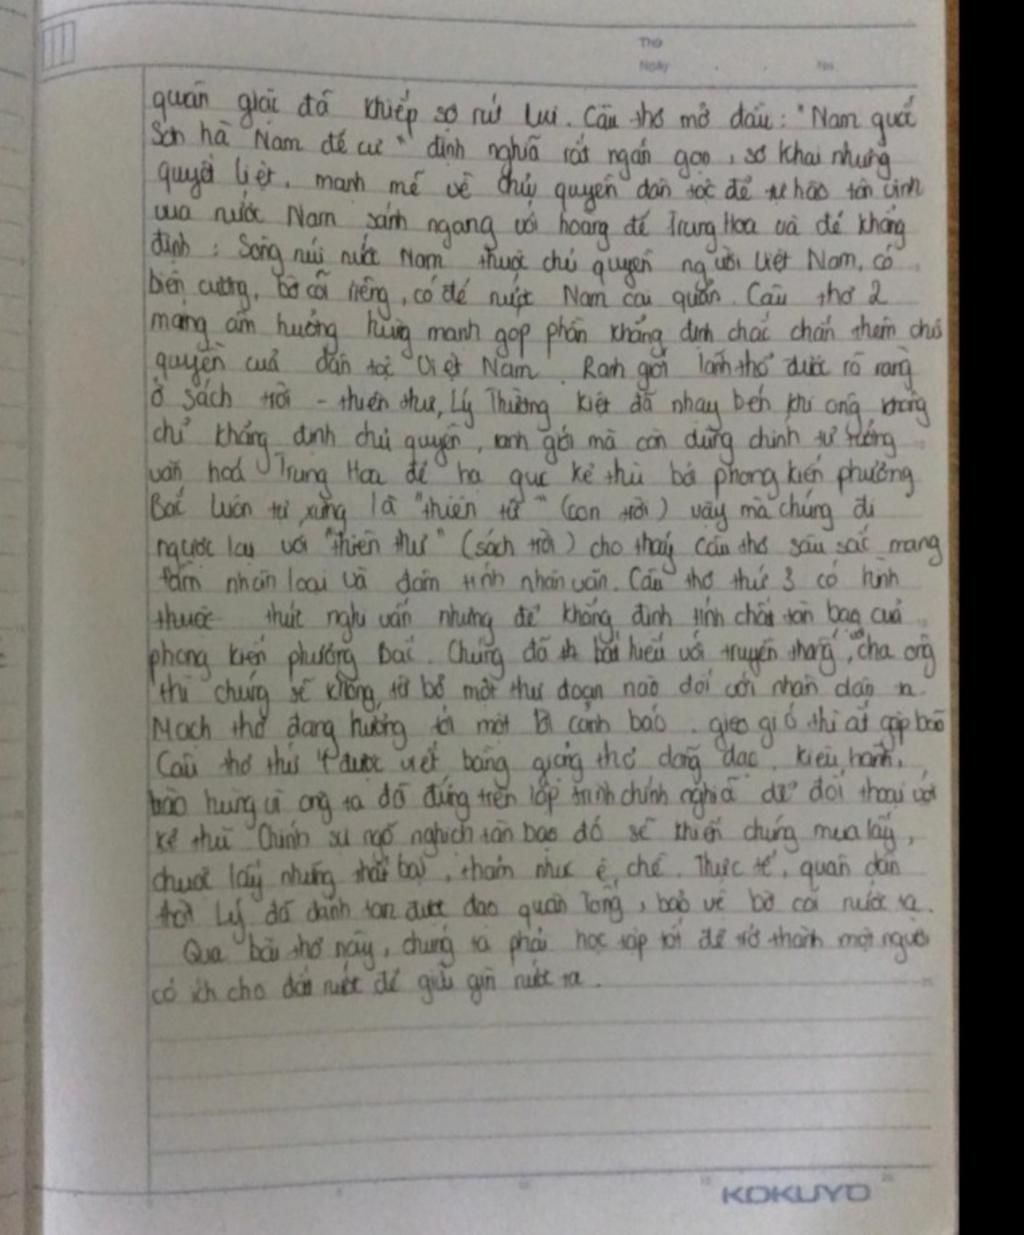 Thứ
Ngày
quân giặc đã khiếp sợ rút lui. Câu thơ mở đầu: "Nam quốc
Sơn hà Nam đế cư" định nghĩa rất ngắn gọn, sơ khai nhưng
quyết liệt, mạnh mẽ về chủ quyền dân tộc để tự hào tôn vinh
vua nước Nam sánh ngang với hoàng đế Trung Hoa và để khẳng
định: Sông núi nước Nam thuộc chủ quyền người Việt Nam, có
biên cương, bờ cõi riêng, có đế nước Nam cai quản. Câu thơ 2
mang âm hưởng hùng mạnh góp phần khẳng định chắc chắn thêm chủ
quyền của dân tộc Việt Nam. Ranh giới lãnh thổ được rõ ràng
ở sách trời - thiên thư, Lý Thường Kiệt đã nhạy bén khi ông không
chỉ khẳng định chủ quyền, ranh giới mà còn dùng chính tư tưởng
văn hoá Trung Hoa để hạ gục kẻ thù bởi phong kiến phương
Bắc luôn tự xưng là "thiên tử" (con trời) vậy mà chúng đi
ngược lại với "thiên thư" (sách trời) cho thấy câu thơ sâu sắc mang
tầm nhân loại và đậm tính nhân văn. Câu thơ thứ 3 có hình
thuộc thức nghi vấn nhưng để khẳng định tính chất tàn bạo của
phong kiến phương Bắc. Chúng đã bất hiếu với truyền thống, cha ông
thì chúng sẽ không từ bỏ một thủ đoạn nào đối với nhân dân ta.
Mạch thơ đang hướng tới một lời cảnh báo. gieo gió thì ắt gặp bão
Câu thơ thứ 4 được viết bằng giọng thơ dõng dạc, kiêu hãnh,
hào hùng vì ông ta đã đứng trên lập trình chính nghĩa để đối thoại với
kẻ thù Chính sự ngỗ nghịch tàn bạo đó sẽ khiến chúng mua lấy,
chuốc lấy những thất bại, thảm nhục ê chề. Thực tế, quân dân
thời Lý đã đánh tan được đạo quân Tống, bảo vệ bờ cõi nước ta.
Qua bài thơ này, chúng ta phải học tập tốt để trở thành một người
có ích cho đất nước để giữ gìn nước ta.
KOKUYO